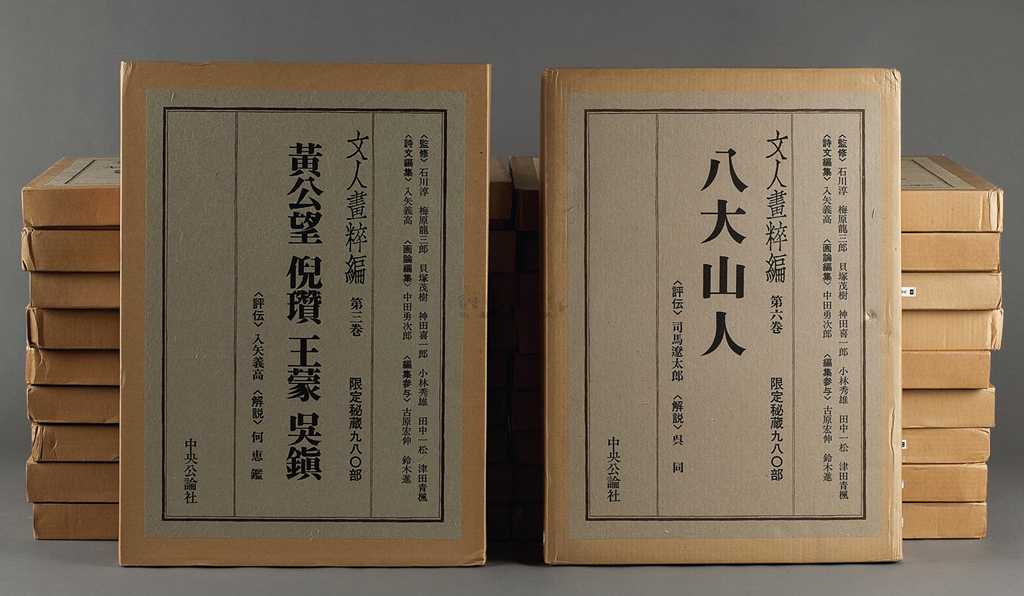 〈監修〉石川淳 梅原龍三郎 貝塚茂樹 神田喜一郎 小林秀雄 田中一松 津田青楓
〈詩文編集〉入矢義高 〈画論編集〉中田勇次郎 〈編集参与〉古原宏伸 鈴木進
文人畫粹編 第三巻 限定秘蔵九八〇部
黃公望 倪瓚 王蒙 吳鎭
〈評伝〉入矢義高 〈解説〉何惠鑑
中央公論社
〈監修〉石川淳 梅原龍三郎 貝塚茂樹 神田喜一郎 小林秀雄 田中一松 津田青楓
〈詩文編集〉入矢義高 〈画論編集〉中田勇次郎 〈編集参与〉古原宏伸 鈴木進
文人畫粹編 第六巻 限定秘蔵九八〇部
八大山人
〈評伝〉司馬遼太郎 〈解説〉呉同
中央公論社